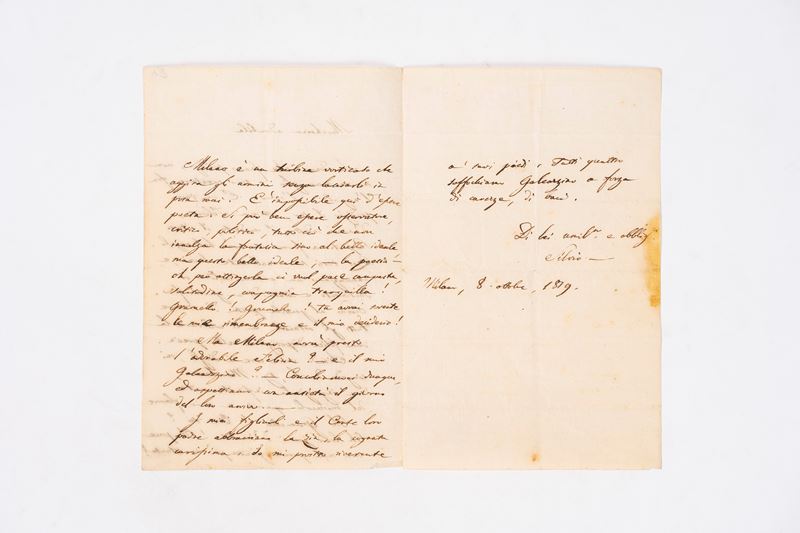 Milano è un turbine vorticato che
aggira gli uomini senza lasciarli in
posa mai. È impossibile qui d'esser
poeta: si può ben esser osservatore,
critico, filosofo, tutto ciò che non
innalza la fantasia sino al bello ideale
ma questo bello ideale, – la poesia –
che può attingerlo ci vuol pace campestre,
solitudine, compagnia tranquilla!
Grumello! Grumello! tu avrai sempre
le mie rimembranze e il mio desiderio!
Ma Milano avrà presto
l'adorabile ? – e il mio
Galeazzino? – Consoliamoci dunque,
ed aspettiamo con ansietà il giorno
del loro arrivo.
I miei figliuoli e il Conte lor
padre abbracciano la zia, la cognata
carissima, io mi prostro riverente
a' suoi piedi, Tutti quattro
soffochiamo Galeazzino a forza
di carezze, di baci.
Di lei umil.º e obblig
Silvio –
Milano, 8 ottobre, 1819.